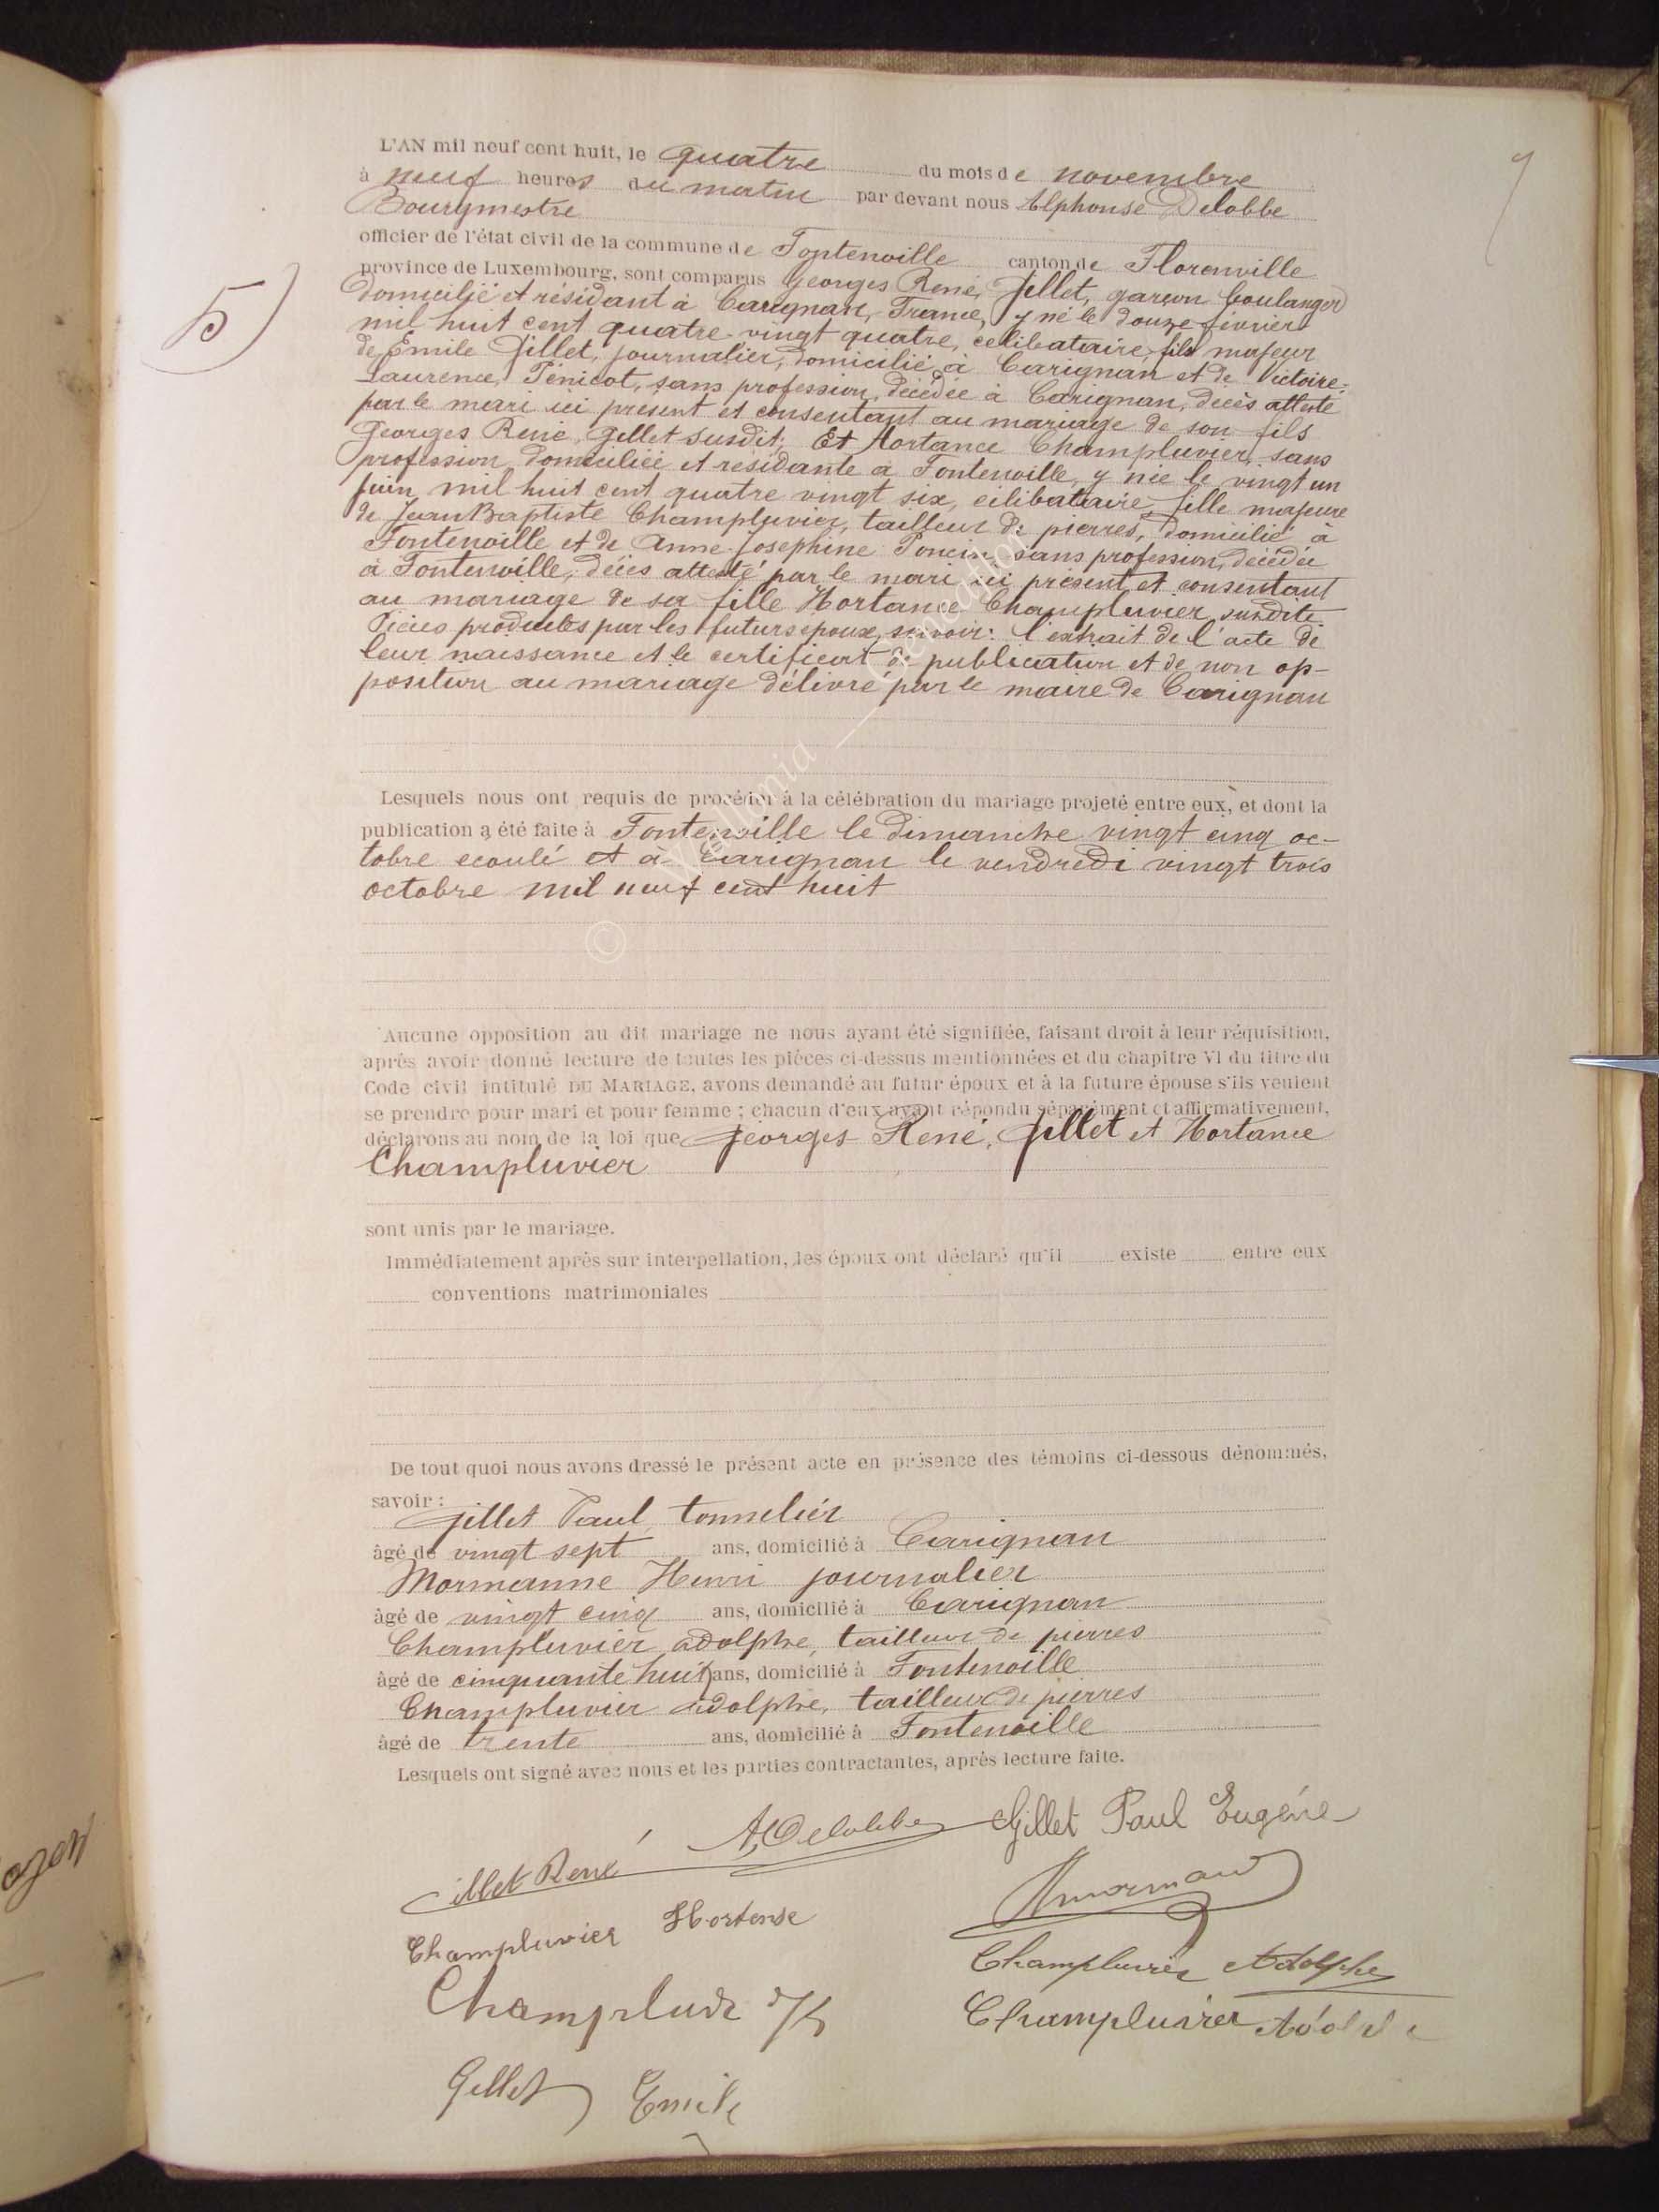 L'AN mil neuf cent huit, le quatre du mois de novembre
à neuf heures du matin par devant nous Alphonse Delobbe
Bourgmestre
officier de l'état civil de la commune de Fontenoille canton de Florenville
province de Luxembourg, sont comparus Georges René, Gillet, garçon boulanger
domicilié et résidant à Carignan, France, y né le douze février
mil huit cent quatre-vingt quatre, célibataire, fils majeur
de Emile Gillet, journalier, domicilié à Carignan et de Victoire-
Laurence, Ténicot, sans profession, décédée à Carignan, décès attesté
par le mari ici présent et consentant au mariage de son fils
Georges René, Gillet susdit; Et Hortance Champluvier, sans
profession, domiciliée et résidante à Fontenoille, y née le vingt un
juin mil huit cent quatre vingt six, célibataire, fille majeure
de Jean Baptiste Champluvier, tailleur de pierres, domicilié à
Fontenoille et de Anne-Josephine Poncin, sans profession, décédée
à Fontenoille, décès attesté par le mari ici présent et consentant
au mariage de sa fille Hortance Champluvier susdite.
Pièces produites par les futurs époux, savoir: l'extrait de l'acte de
leur naissance et le certificat de publication et de non op-
position au mariage délivré par le maire de Carignan
Lesquels nous ont requis de procéder à la célébration du mariage projeté entre eux, et dont la
publication a été faite à Fontenoille le dimanche vingt cinq oc-
tobre ecoulé et à Carignan le vendredi vingt trois
octobre mil neuf cent huit
Aucune opposition au dit mariage ne nous ayant été signifiée, faisant droit à leur réquisition,
après avoir donné lecture de toutes les pièces ci-dessus mentionnées et du chapitre VI du titre du
Code civil intitulé DU MARIAGE, avons demandé au futur époux et à la future épouse s'ils veulent
se prendre pour mari et pour femme ; chacun d'eux ayant répondu séparément et affirmativement,
déclarons au nom de la loi que Georges René, Gillet et Hortance
Champluvier
sont unis par le mariage.
Immédiatement après sur interpellation, les époux ont déclaré qu'il existe entre eux
conventions matrimoniales
De tout quoi nous avons dressé le présent acte en présence des témoins ci-dessous dénommés,
savoir :
Gillet Paul, tonnelier
âgé de vingt sept ans, domicilié à Carignan
Mormanne Henri journalier
âgé de vingt cinq ans, domicilié à Carignan
Champluvier adolphe, tailleur de pierres
âgé de cinquante huit ans, domicilié à Fontenoille
Champluvier adolphe, tailleur de pierres
âgé de trente ans, domicilié à Fontenoille
Lesquels ont signé avec nous et les parties contractantes, après lecture faite.
A, Delobbe Gillet Paul Eugène
Gillet René
Champluvier Hortense
Champluvier Adolphe
Champluvier Adolphe
Gillet Emile
5)
9
© Wallonia